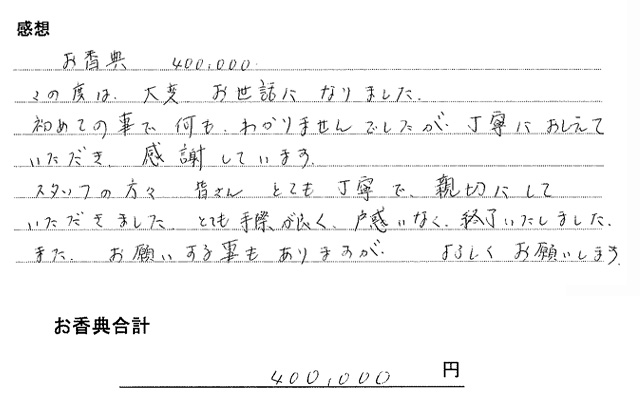 感想
お香典 400,000
この度は、大変 お世話に なりました。
初めての事で 何も、わかりませんでしたが、丁寧に おしえて
いただき、感謝しています。
スタッフの方々 皆さん とても 丁寧で、親切にして
いただきました。とても手際が良く、戸惑いなく、終了いたしました。
また、お願いする事も ありますが、 よろしく お願いします。
お香典合計
400,000 円